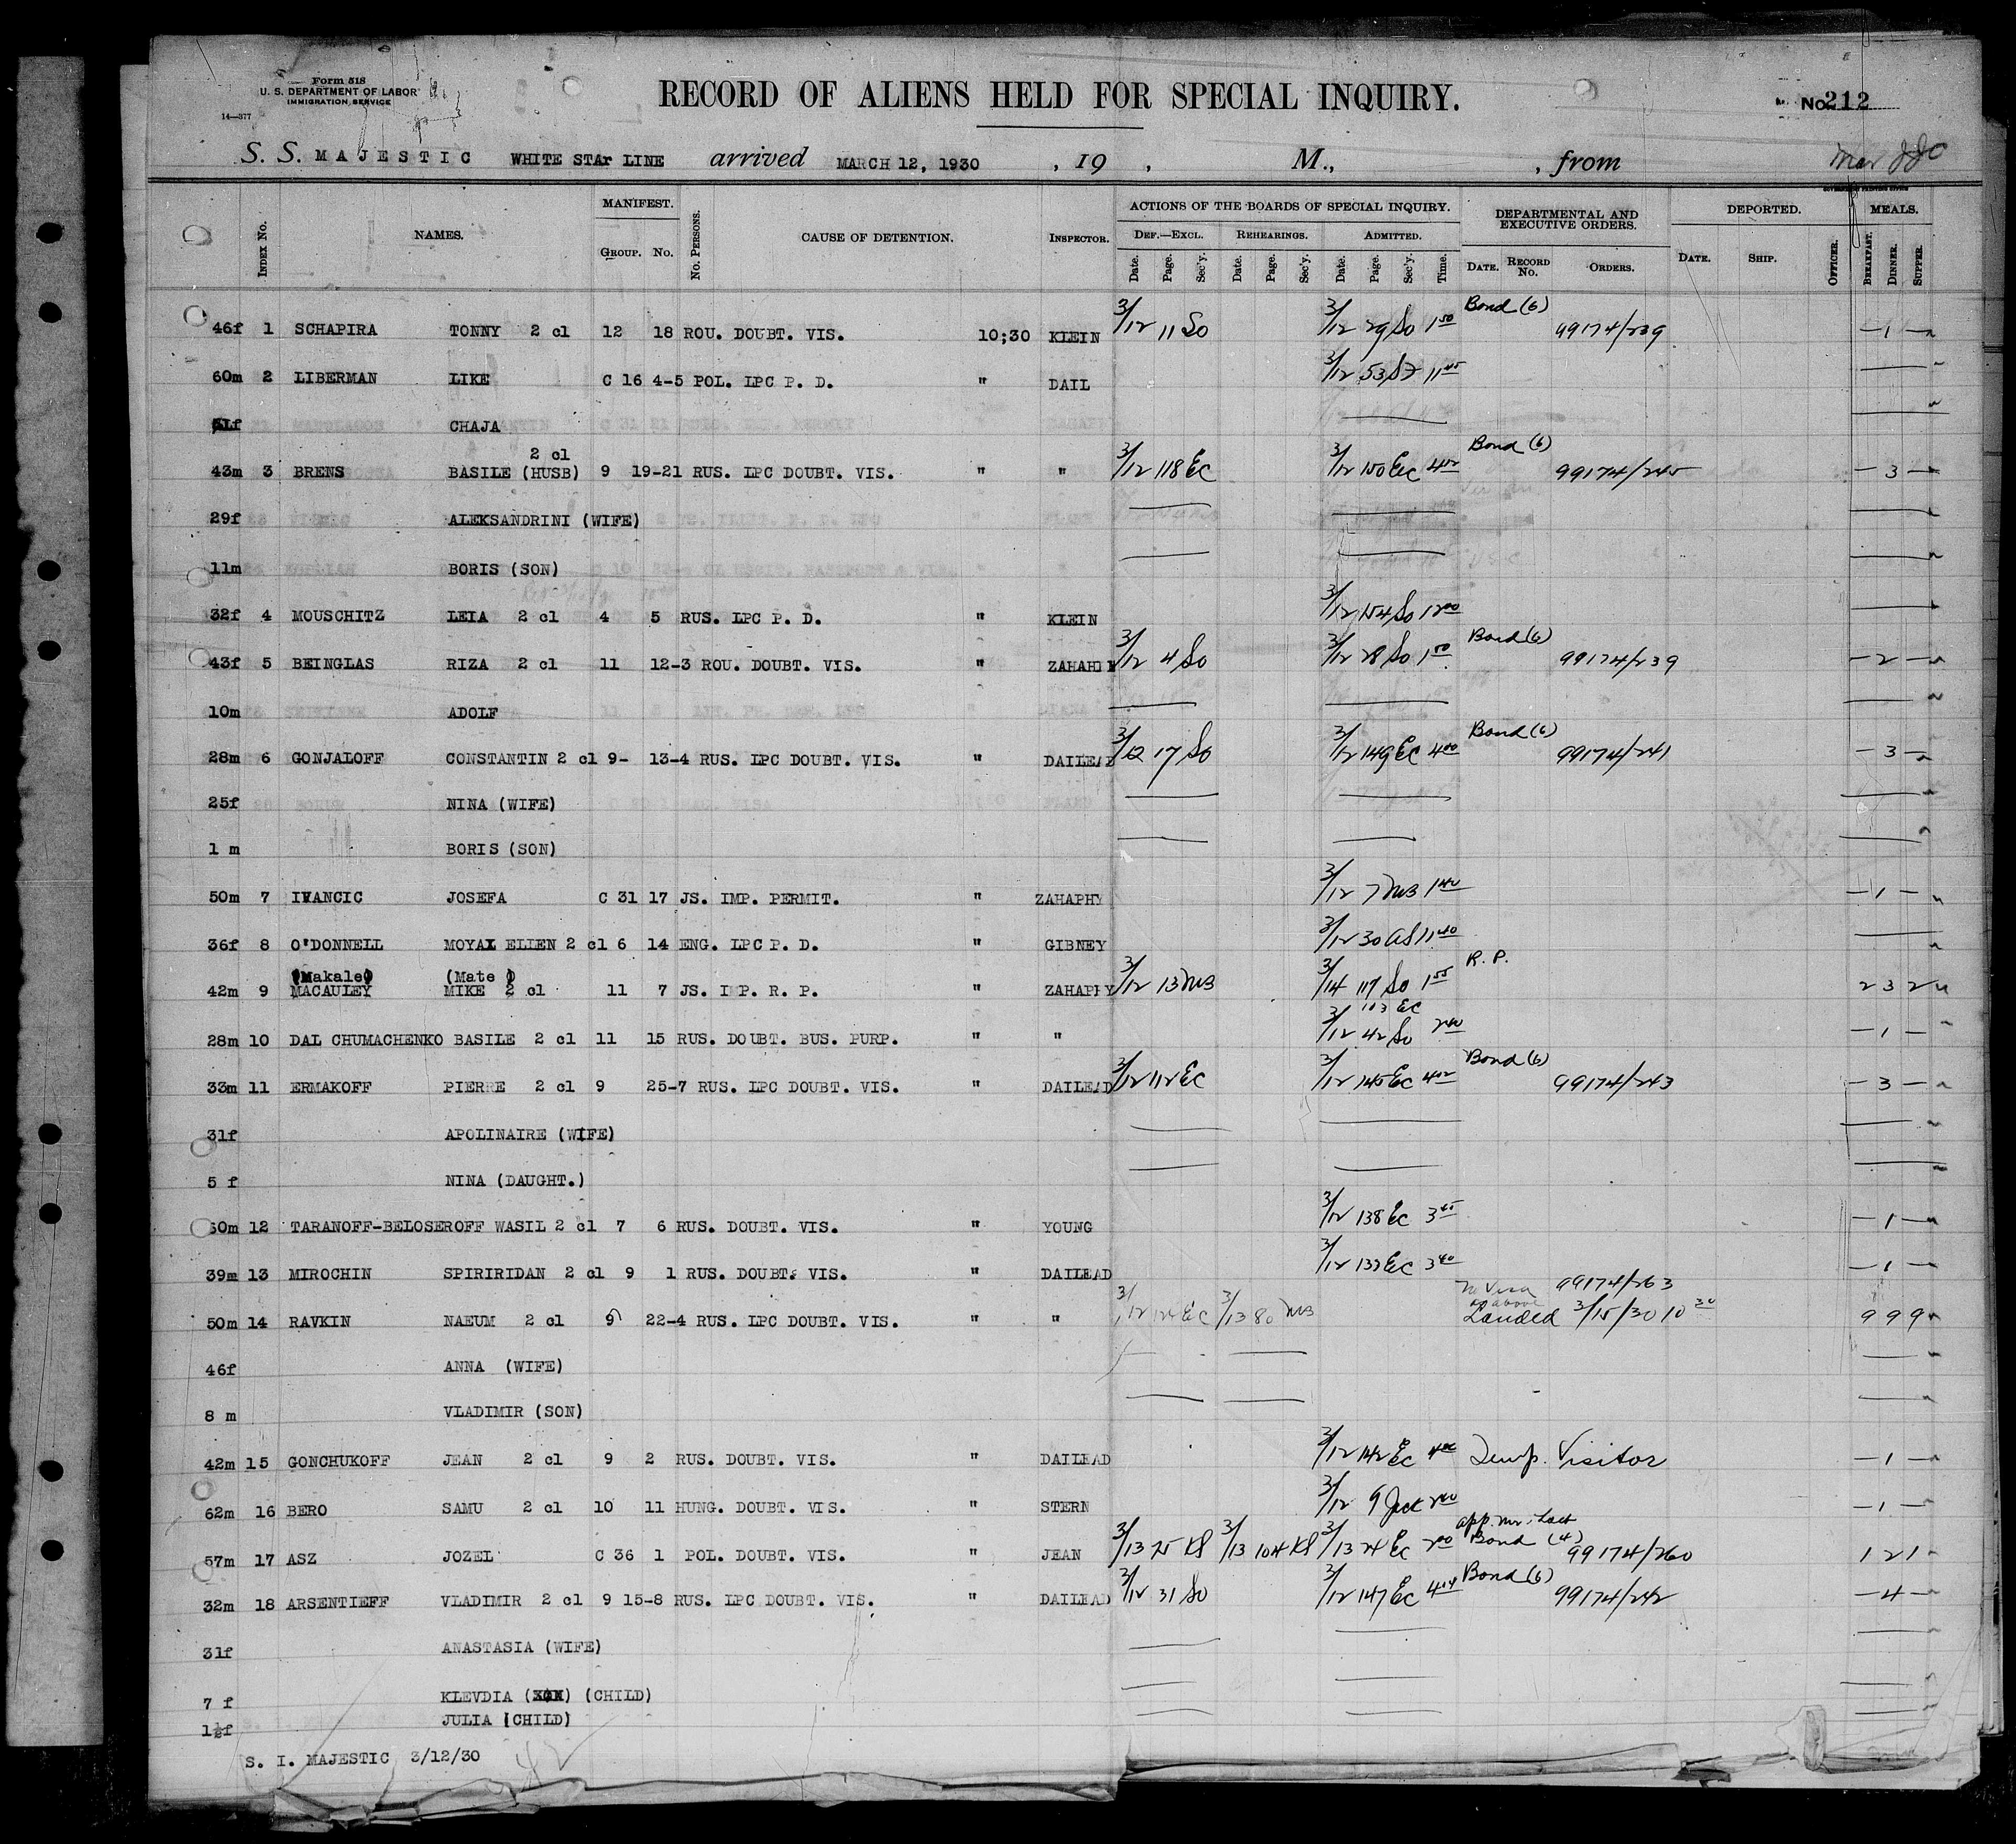 Form 518
U. S. DEPARTMENT OF LABOR
IMMIGRATION SERVICE
14—377
RECORD OF ALIENS HELD FOR SPECIAL INQUIRY.
No. 212
S. S. MAJESTIC WHITE STAr LINE arrived MARCH 12, 1930 , 19 , M., , from
MANIFEST. ACTIONS OF THE BOARDS OF SPECIAL INQUIRY. DEPARTMENTAL AND EXECUTIVE ORDERS. DEPORTED. MEALS.
Index No. NAMES. GROUP. No. No. Persons. CAUSE OF DETENTION. INSPECTOR. DEF.—EXCL. REHEARINGS. ADMITTED.
Date. Page. Sec'y. Date. Page. Sec'y. Date. Page. Sec'y. Time. DATE. RECORD No. ORDERS. DATE. SHIP. OFFICER. BREAKFAST. DINNER. SUPPER.
46f 1 SCHAPIRA TONNY 2 cl 12 18 ROU. DOUBT. VIS. 10;30 KLEIN 3/12 11 So 3/12 29 So 1 50 Bond (6) 99174/239 — 1 —
60m 2 LIBERMAN LIKE C 16 4-5 POL. LPC P. D. " DAIL 3/12 53 11 45
CHAJA
43m 3 BRENS BASILE (HUSB) 2 cl 9 19-21 RUS. LPC DOUBT. VIS. " " 3/12 118 Ec 3/12 150 Ec 4 02 Bond (6) 99174/245 — 3 —
29f ALEKSANDRINI (WIFE)
11m BORIS (SON)
32f 4 MOUSCHITZ LEIA 2 cl 4 5 RUS. LPC P. D. " KLEIN 3/12 154 So 12 00
43f 5 BEINGLAS RIZA 2 cl 11 12-3 ROU. DOUBT. VIS. " 3/12 4 So 3/12 28 So 1 50 Bond (6) 99174/239 — 2 —
10m ADOLF
28m 6 GONJALOFF CONSTANTIN 2 cl 9- 13-4 RUS. LPC DOUBT. VIS. " DAILEAD 3/12 17 So 3/12 149 Ec 4 00 Bond (6) 99174/241 — 3 —
25f NINA (WIFE)
1 m BORIS (SON)
50m 7 IVANCIC JOSEFA C 31 17 JS. IMP. PERMIT. " ZAHAPHY 3/12 7 MB 1 40 — 1 —
36f 8 O'DONNELL MOYAL ELIEN 2 cl 6 14 ENG. LPC P. D. " GIBNEY 3/12 30 11 40
(Makale) (Mate )
42m 9 MACAULEY MIKE 2 cl 11 7 JS. IMP. R. P. " ZAHAPHY 3/12 13 MB 3/14 117 So 1 55 R. P. 2 3 2
103 Ec
28m 10 DAL CHUMACHENKO BASILE 2 cl 11 15 RUS. DOUBT. BUS. PURP. " " 3/12 42 So 2 40 — 1 —
33m 11 ERMAKOFF PIERRE 2 cl 9 25-7 RUS. LPC DOUBT. VIS. " DAILEAD 3/12 112 Ec 3/12 145 Ec 4 02 Bond (6) 99174/243 — 3 —
31f APOLINAIRE (WIFE)
5 f NINA (DAUGHT.)
50m 12 TARANOFF-BELOSEROFF WASIL 2 cl 7 6 RUS. DOUBT. VIS. " YOUNG 3/12 138 Ec 3 45 — 1 —
39m 13 MIROCHIN SPIRIRIDAN 2 cl 9 1 RUS. DOUBT. VIS. " DAILEAD 3/12 133 Ec 3 40 — 1 —
No Visa as above 99174/263
50m 14 RAVKIN NAEUM 2 cl 9 22-4 RUS. LPC DOUBT. VIS. " " 3/12 124 Ec 3/13 80 MB Landed 3/15/30 10 30 9 9 9
46f ANNA (WIFE)
8 m VLADIMIR (SON)
42m 15 GONCHUKOFF JEAN 2 cl 9 2 RUS. DOUBT. VIS. " DAILEAD 3/12 142 Ec 4 00 Temp. Visitor — 1 —
62m 16 BERO SAMU 2 cl 10 11 HUNG. DOUBT. VIS. " STERN 3/12 9 2 40 — 1 —
57m 17 ASZ JOZEL C 36 1 POL. DOUBT. VIS. " JEAN 3/13 25 KS 3/13 104 KS 3/13 24 Ec 2 00 Bond (4) 99174/260 1 2 1
32m 18 ARSENTIEFF VLADIMIR 2 cl 9 15-8 RUS. LPC DOUBT. VIS. " DAILEAD 3/12 31 So 3/12 147 Ec 4 04 Bond (6) 99174/242 — 4 —
31f ANASTASIA (WIFE)
7 f KLEVDIA (CHILD)
1½f JULIA (CHILD)
S. I. MAJESTIC 3/12/30 42